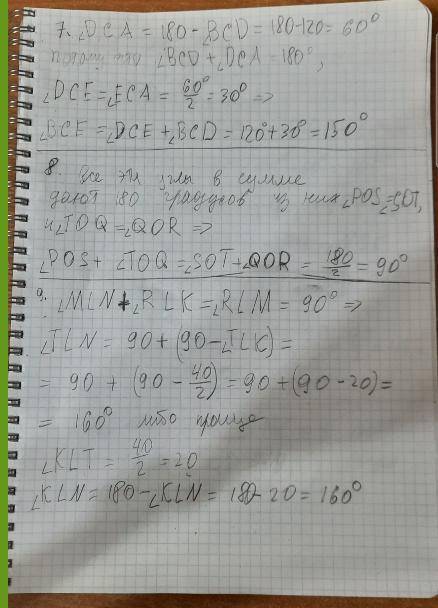 7. ∠DCA = 180 - ∠BCD = 180-120 = 60°
потому что ∠BCD + ∠DCA = 180°,
∠DCE = ∠ECA = 60°/2 = 30° =>
∠BCE = ∠DCE + ∠BCD = 120°+30° = 150°
8. Все эти углы в сумме
дают 180 градусов из них ∠POS = ∠SOT,
и ∠TOQ = ∠QOR =>
∠POS + ∠TOQ = ∠SOT + ∠QOR = 180/2 = 90°
9. ∠MLN + ∠RLK = ∠RLM = 90° =>
∠TLN = 90 + (90 - ∠TLK) =
= 90 + (90 - 40/2) = 90 + (90 - 20) =
= 160° либо проще
∠KLT = 40/2 = 20
∠KLN = 180 - ∠KLN = 180 - 20 = 160°